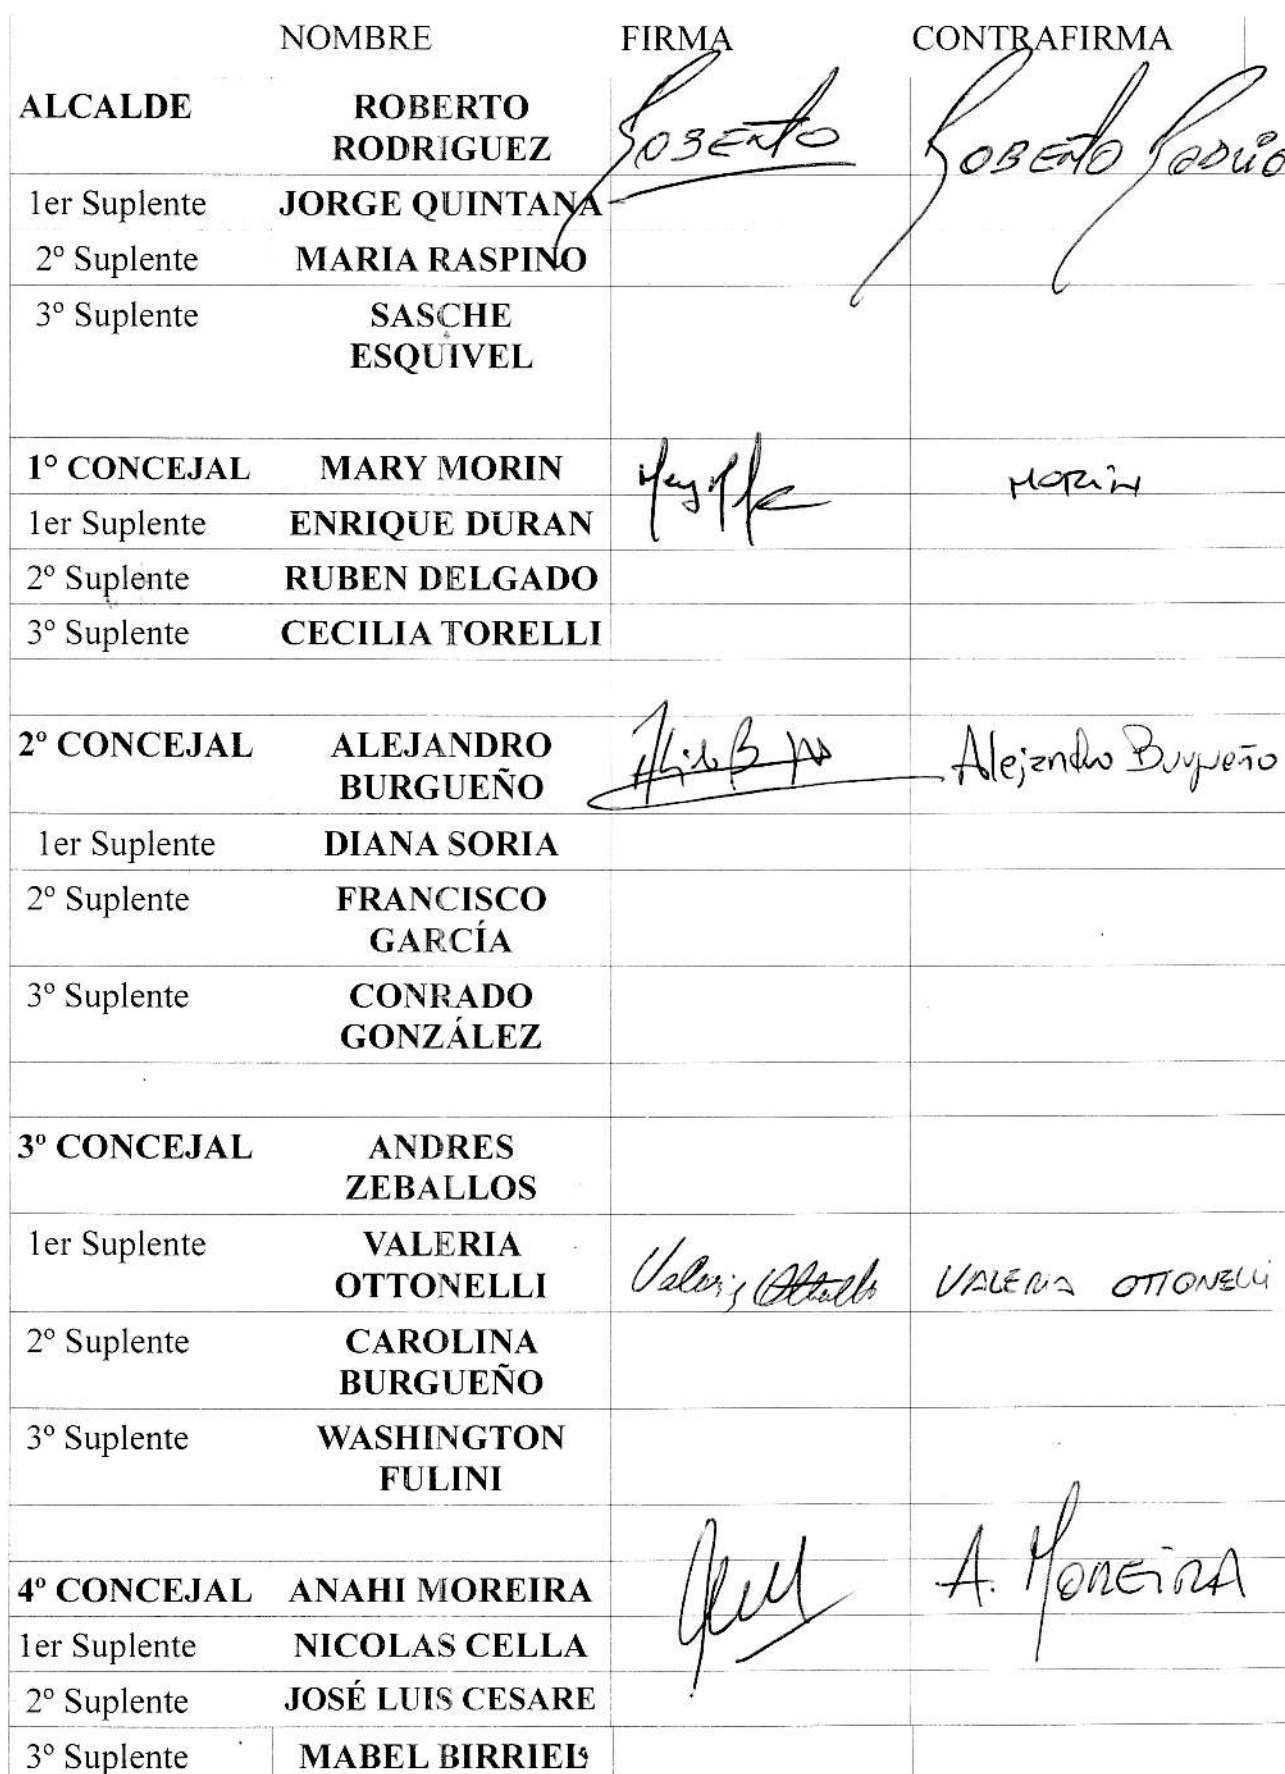 NOMBRE FIRMA CONTRAFIRMA
ALCALDE ROBERTO
RODRIGUEZ
ROBERTO ROBERTO
1er Suplente JORGE QUINTANA
2º Suplente MARIA RASPINO
3º Suplente SASCHE
ESQUIVEL
1º CONCEJAL MARY MORIN MORIN
1er Suplente ENRIQUE DURAN
2º Suplente RUBEN DELGADO
3º Suplente CECILIA TORELLI
2º CONCEJAL ALEJANDRO
BURGUEÑO
Alejandro Burgueño
1er Suplente DIANA SORIA
2º Suplente FRANCISCO
GARCÍA
3º Suplente CONRADO
GONZÁLEZ
3º CONCEJAL ANDRES
ZEBALLOS
1er Suplente VALERIA
OTTONELLI
Valeria Ottonelli VALERIA OTTONELLI
2º Suplente CAROLINA
BURGUEÑO
3º Suplente WASHINGTON
FULINI
4º CONCEJAL ANAHI MOREIRA A. MOREIRA
1er Suplente NICOLAS CELLA
2º Suplente JOSÉ LUIS CESARE
3º Suplente MABEL BIRRIEL